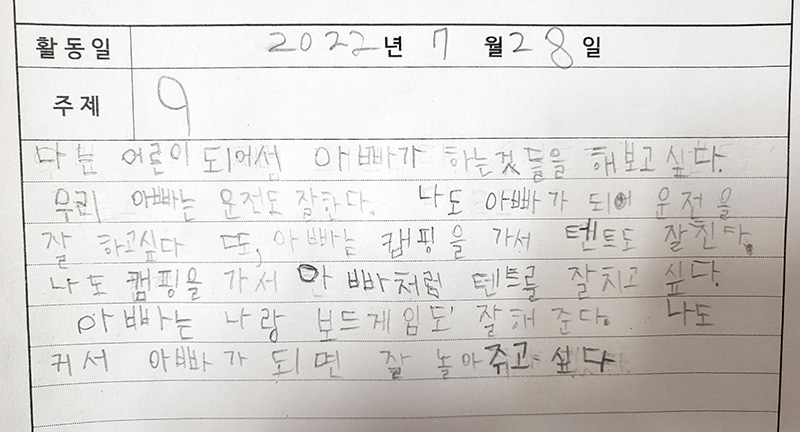 활동일 2022년 7 월 28 일
주제 9
나는 어른이 되어서 아빠가 하는것들을 해보고 싶다.
우리 아빠는 운전도 잘한다. 나도 아빠가 되어 운전을
잘 하고싶다 또, 아빠는 캠핑을 가서 텐트도 잘친다.
나도 캠핑을 가서 아빠처럼 텐트를 잘치고 싶다.
아빠는 나랑 보드게임도 잘해 준다. 나도
커서 아빠가 되면 잘 놀아주고 싶다